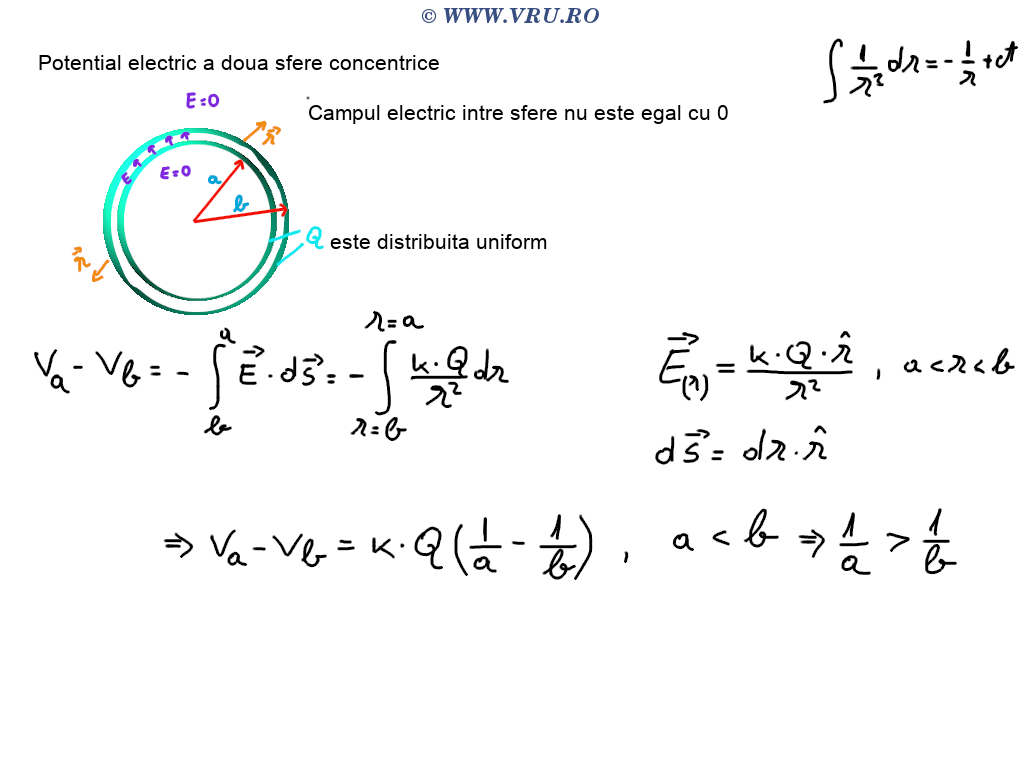 © WWW.VRU.RO
Potential electric a doua sfere concentrice
∫ 1/r² dr = - 1/r + ct
E=0
Campul electric intre sfere nu este egal cu 0
r⃗
E
E=0
a
b
Q este distribuita uniform
r⃗
Va - Vb = - ∫_b^a E⃗ · ds⃗ = - ∫_{r=b}^{r=a} (k·Q/r²) dr
E⃗(r) = k·Q·r̂ / r² , a<r<b
ds⃗ = dr·r̂
⇒ Va - Vb = k·Q (1/a - 1/b) , a < b ⇒ 1/a > 1/b